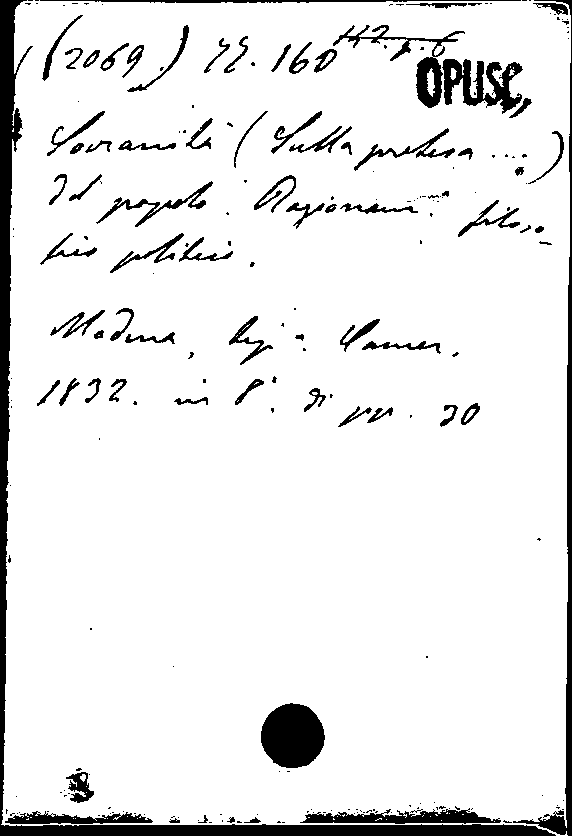 (2069.) EE. 160 112. p. 6
OPUSC,
Sovranità (Sulla pretesa ....)
del popolo. Ragionam.° filoso-
fico politico.
Modena, tip.ª Camer.
1832. in 8°. di pp. 30